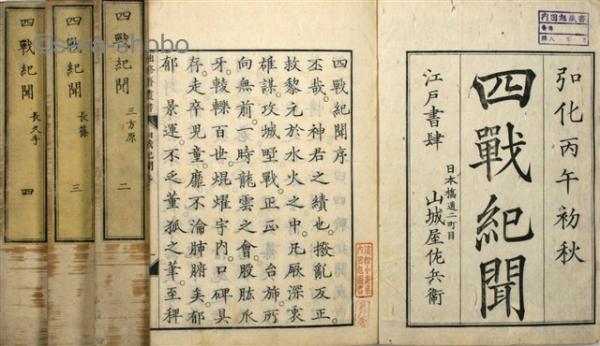 弘化丙午初秋
四戰紀聞
江戸書肆
日本橋通二町目
山城屋佐兵衛
四戰紀聞序
丕哉。神君之績也。撥亂反正。
救黎元於水火之中。凡厥深衷
雄謀。攻城野戰。正正台旆。所
向無前。一時龍雲之會。股肱爪
牙。轇轕百世。焜燿宇内。口碑具
存。走卒兒童。靡不淪肺腑矣。郁
郁景運。不乏董狐之筆。至稗
四戰紀聞 三方原 二
四戰紀聞 長篠 三
四戰紀聞 長久手 四
©Sara-shobo